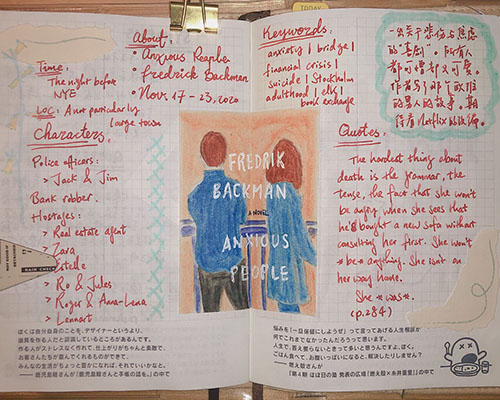 Time:
The night before
NYE
Loc: A not particularly
large town
Characters:
Police officers:
> Jack & Jim
Bank robber.
Hostages:
> Real estate agent
> Zara
Estelle
> Ro & Jules
> Roger & Anna-Lena
> Lennart
HAIR CHECK
About:
• Anxious People
• Fredrick Backman
• Nov. 17-23, 2020
FREDRIK
BACKMAN
A NOVEL
ANXIOUS
PEOPLE
ぼくは自分自身のことを、デザイナーというより、
道具を作る人だと認識しているところがあるんです。
作る人がストレスなく作れて、仕上がりがちゃんと素敵で、
お客さんたちが喜んでくれるものができて、
みんなの生活がちょっと豊かになれば、それでいいかなと。
——鹿児島睦さんが『鹿児島睦さんと手帳の話を。』の中で
TODAY
Keywords:
anxiety | bridge |
financial crisis |
suicide | Stockholm
adulthood | elk |
book exchange
一出关于悲伤与焦虑
的"喜剧"。所有人
都可憎却又可爱。
作者写了那个
的男人的故事。期
待着Netflix的改编。
Quotes:
The hardest thing about
death is the grammar, the
tense, the fact that she won't
be angry when she sees that
he's bought a new sofa without
consulting her first. She won't
*be* anything. She isn't on
her way home.
She *was*.
(p.284)
悩みを「一旦保留にしようぜ」って言ってあげる人生相談が
何でこれまでなかったんだろうって思います。
人生で、答え要らないときって多いと思うんですよ、ぼく。
ごはん食べて、お腹いっぱいになると、解決したりしません？
——燃え殻さんが
『第4回 ほぼ日の塾 発表の広場「燃え殻×糸井重里」』の中で